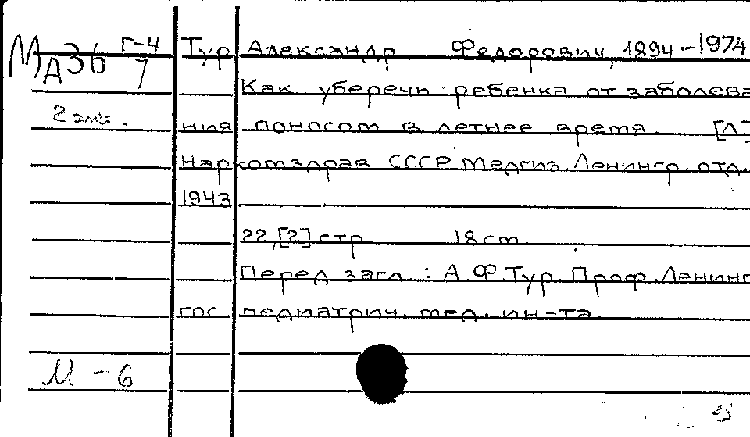 МА36 Г-4/7
Тур Александр Федорович, 1894-1974
Как уберечь ребенка от заболева
2 экз.
ния поносом в летнее время. [Л.]
Наркомздрав СССР Медгиз Ленингр. отд.
1943
22,[2] стр 18 см
Перед загл.: А.Ф.Тур Проф. Ленингр
гос педиатрич. мед. ин-та
М - 6